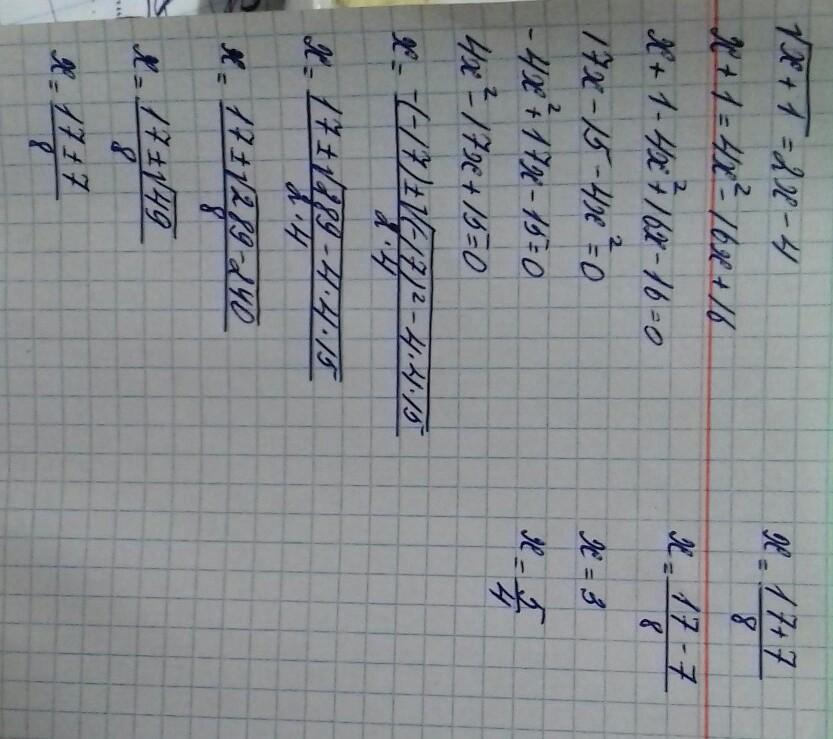 √x+1 = 2x-4
x+1=4x²-16x+16
x+1-4x²+16x-16=0
17x-15-4x²=0
-4x²+17x-15=0
4x²-17x+15=0
x= -(-17)±√(-17)²-4·4·15 / 2·4
x= 17±√289-4·4·15 / 2·4
x= 17±√289-240 / 8
x= 17±√49 / 8
x= 17±7 / 8
x= 17+7 / 8
x= 17-7 / 8
x=3
x= 5/4